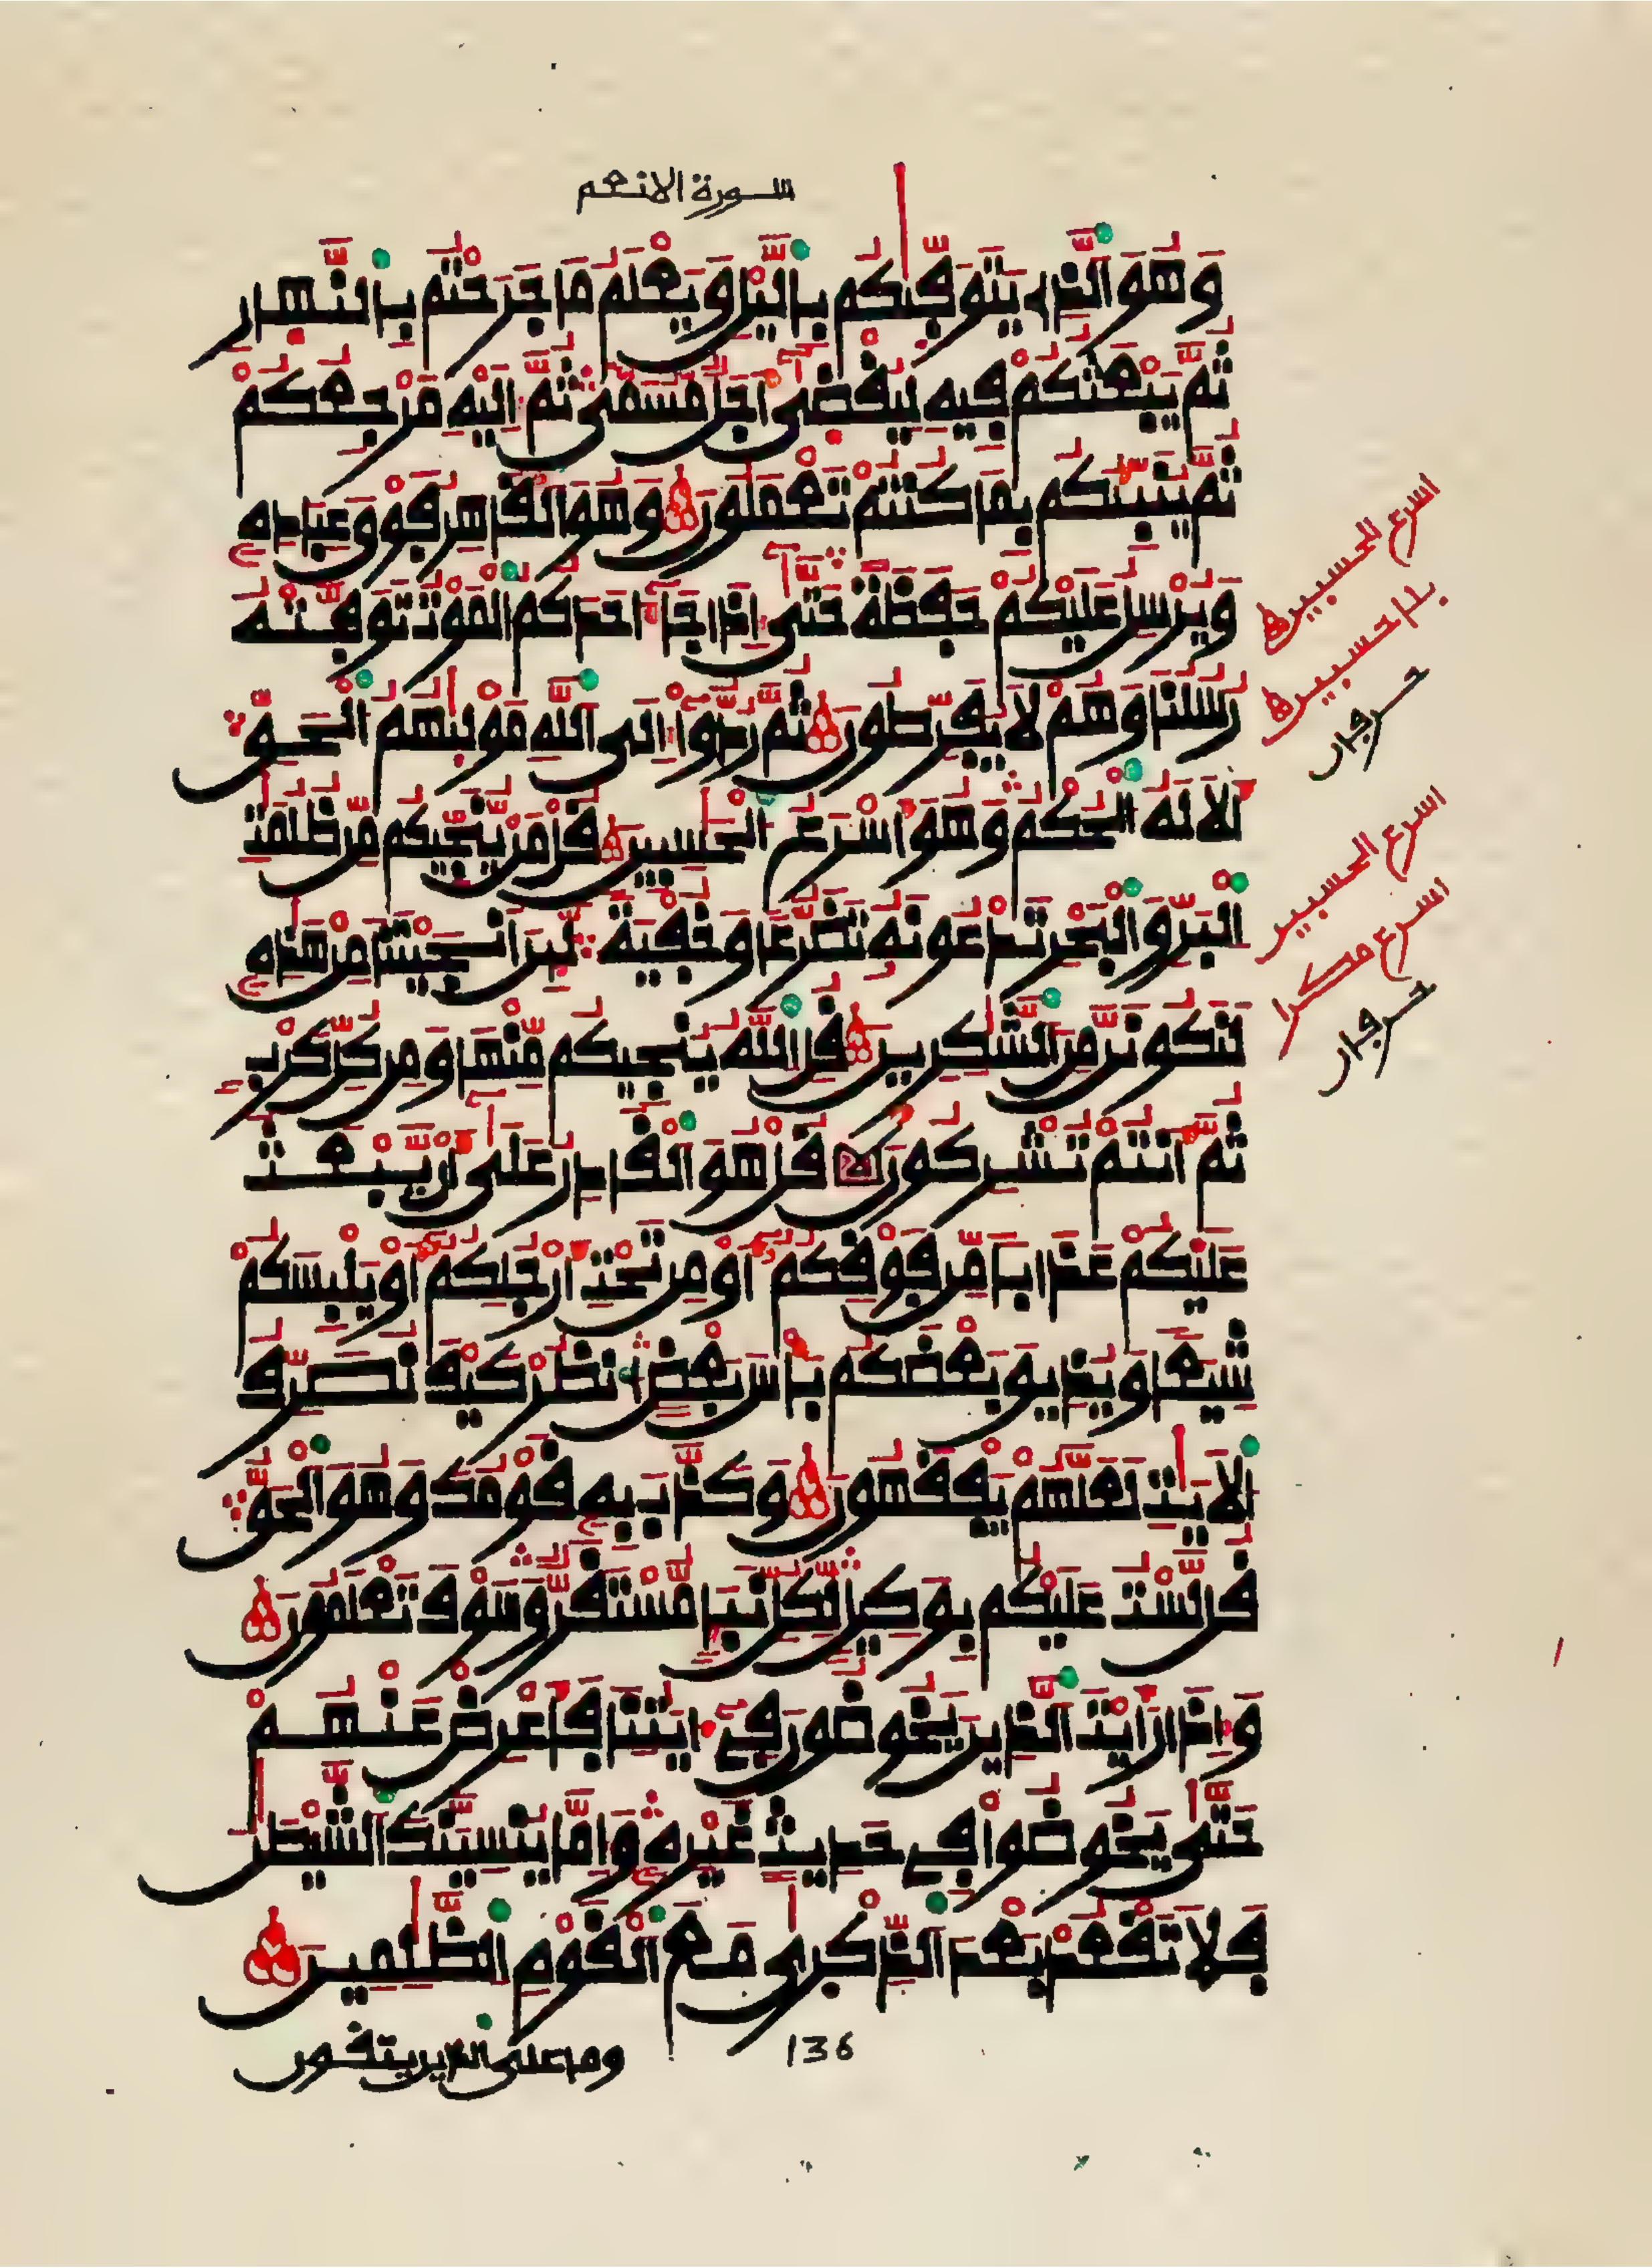 سورة الانعم
وَهُوَ الذِے يَتَوَفّٰيكُم بِاليْلِ وَيَعْلَمُ مَا جَرَحْتُم بِالنَّهِارِ
ثُمَّ يَبْعَثُكُمْ فِيهِ لِيُقْضٰىٓ أَجَلٌ مُّسَمّىً ثُمَّ إِلَيْهِ مَرْجِعُكُمْ
ثُمَّ يُنَبِّئُكُم بِمَا كُنتُمْ تَعْمَلُونَ وَهُوَ الْقَاهِرُ فَوْقَ عِبَادِهِۦ
وَيُرْسِلُ عَلَيْكُمْ حَفَظَةً حَتّٰىٓ إِذَا جَآءَ احَدَكُمُ الْمَوْتُ تَوَفَّتْهُ
رُسُلُنَا وَهُمْ لَا يُفَرِّطُونَ ثُمَّ رُدُّوٓاْ إِلَى اللَّهِ مَوْلٰيهُمُ الْحَقِّ
أَلَا لَهُ الْحُكْمُ وَهُوَ أَسْرَعُ الْحَٰسِبِينَ قُلْ مَنْ يُّنَجِّيكُم مِّن ظُلُمَٰتِ
الْبَرِّ وَالْبَحْرِ تَدْعُونَهُۥ تَضَرُّعاً وَخُفْيَةً لَّئِنَ اَنجَيْتَنَا مِنْ هَٰذِهِۦ
لَنَكُونَنَّ مِنَ الشَّٰكِرِينَ قُلِ اللَّهُ يُنجِيكُم مِّنْهَا وَمِن كُلِّ كَرْبٍ
ثُمَّ أَنتُمْ تُشْرِكُونَ قُلْ هُوَ الْقَادِرُ عَلَىٰٓ أَنْ يَّبْعَثَ
عَلَيْكُمْ عَذَاباً مِّن فَوْقِكُمُۥٓ أَوْ مِن تَحْتِ أَرْجُلِكُمُۥٓ أَوْ يَلْبِسَكُمْ
شِيَعاً وَيُذِيقَ بَعْضَكُم بَأْسَ بَعْضٍ انظُرْ كَيْفَ نُصَرِّفُ
الْأيَٰتِ لَعَلَّهُمْ يَفْقَهُونَ وَكَذَّبَ بِهِۦ قَوْمُكَ وَهُوَ الْحَقُّ
قُل لَّسْتُ عَلَيْكُم بِوَكِيلٍ لِّكُلِّ نَبَإٍ مُّسْتَقَرٌّ وَسَوْفَ تَعْلَمُونَ
وَإِذَا رَأَيْتَ الذِينَ يَخُوضُونَ فِےٓ ءَايَٰتِنَا فَأَعْرِضْ عَنْهُمْ
حَتَّىٰ يَخُوضُواْ فِے حَدِيثٍ غَيْرِهِۦ وَإِمَّا يُنسِيَنَّكَ الشَّيْطَٰنُ
فَلَا تَقْعُدْ بَعْدَ الذِّكْرٰى مَعَ الْقَوْمِ الظَّٰلِمِينَ
136
وما على الذين يتقون
اسرع الحسبين
بدا حسبين
حرجان
اسرع الحسبين
اسرع مكرا
حرجان